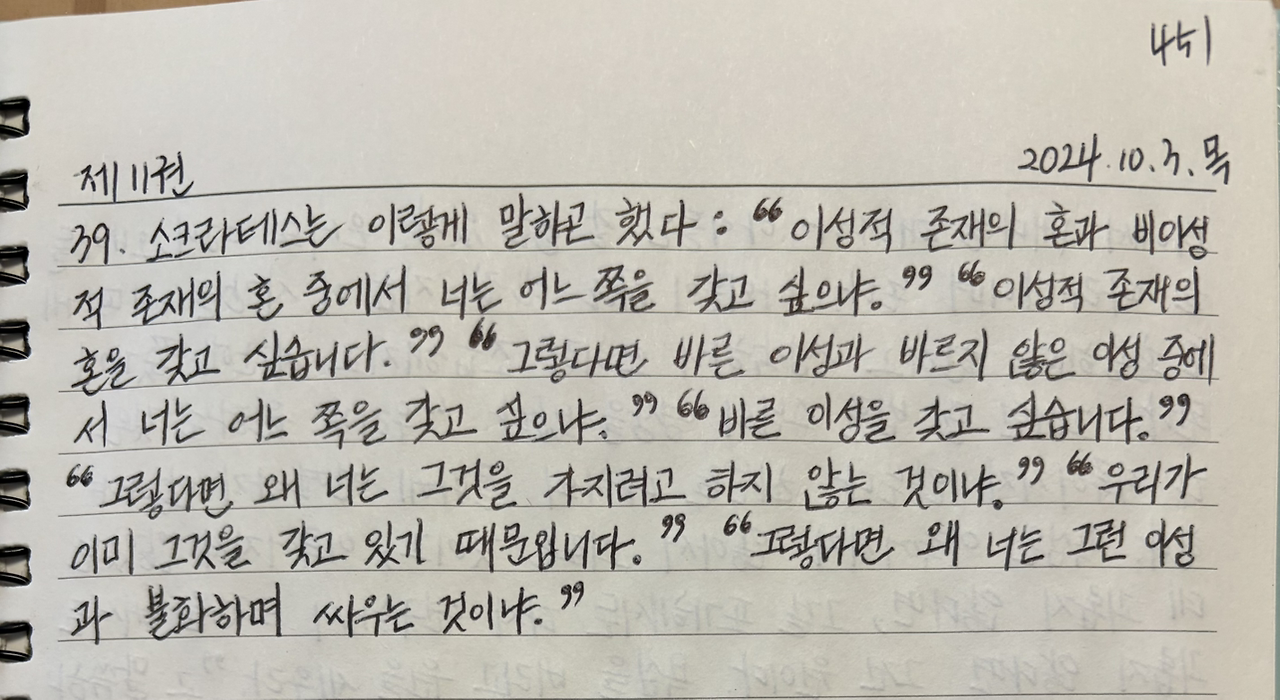 451
제11권 2024.10.3.목
39. 소크라테스는 이렇게 말하곤 했다: “이성적 존재의 혼과 비이성
적 존재의 혼 중에서 너는 어느 쪽을 갖고 싶으냐.” “이성적 존재의
혼을 갖고 싶습니다.” “그렇다면 바른 이성과 바르지 않은 이성 중에
서 너는 어느 쪽을 갖고 싶으냐.” “바른 이성을 갖고 싶습니다.”
“그렇다면 왜 너는 그것을 가지려고 하지 않는 것이냐.” “우리가
이미 그것을 갖고 있기 때문입니다.” “그렇다면 왜 너는 그런 이성
과 불화하며 싸우는 것이냐.”